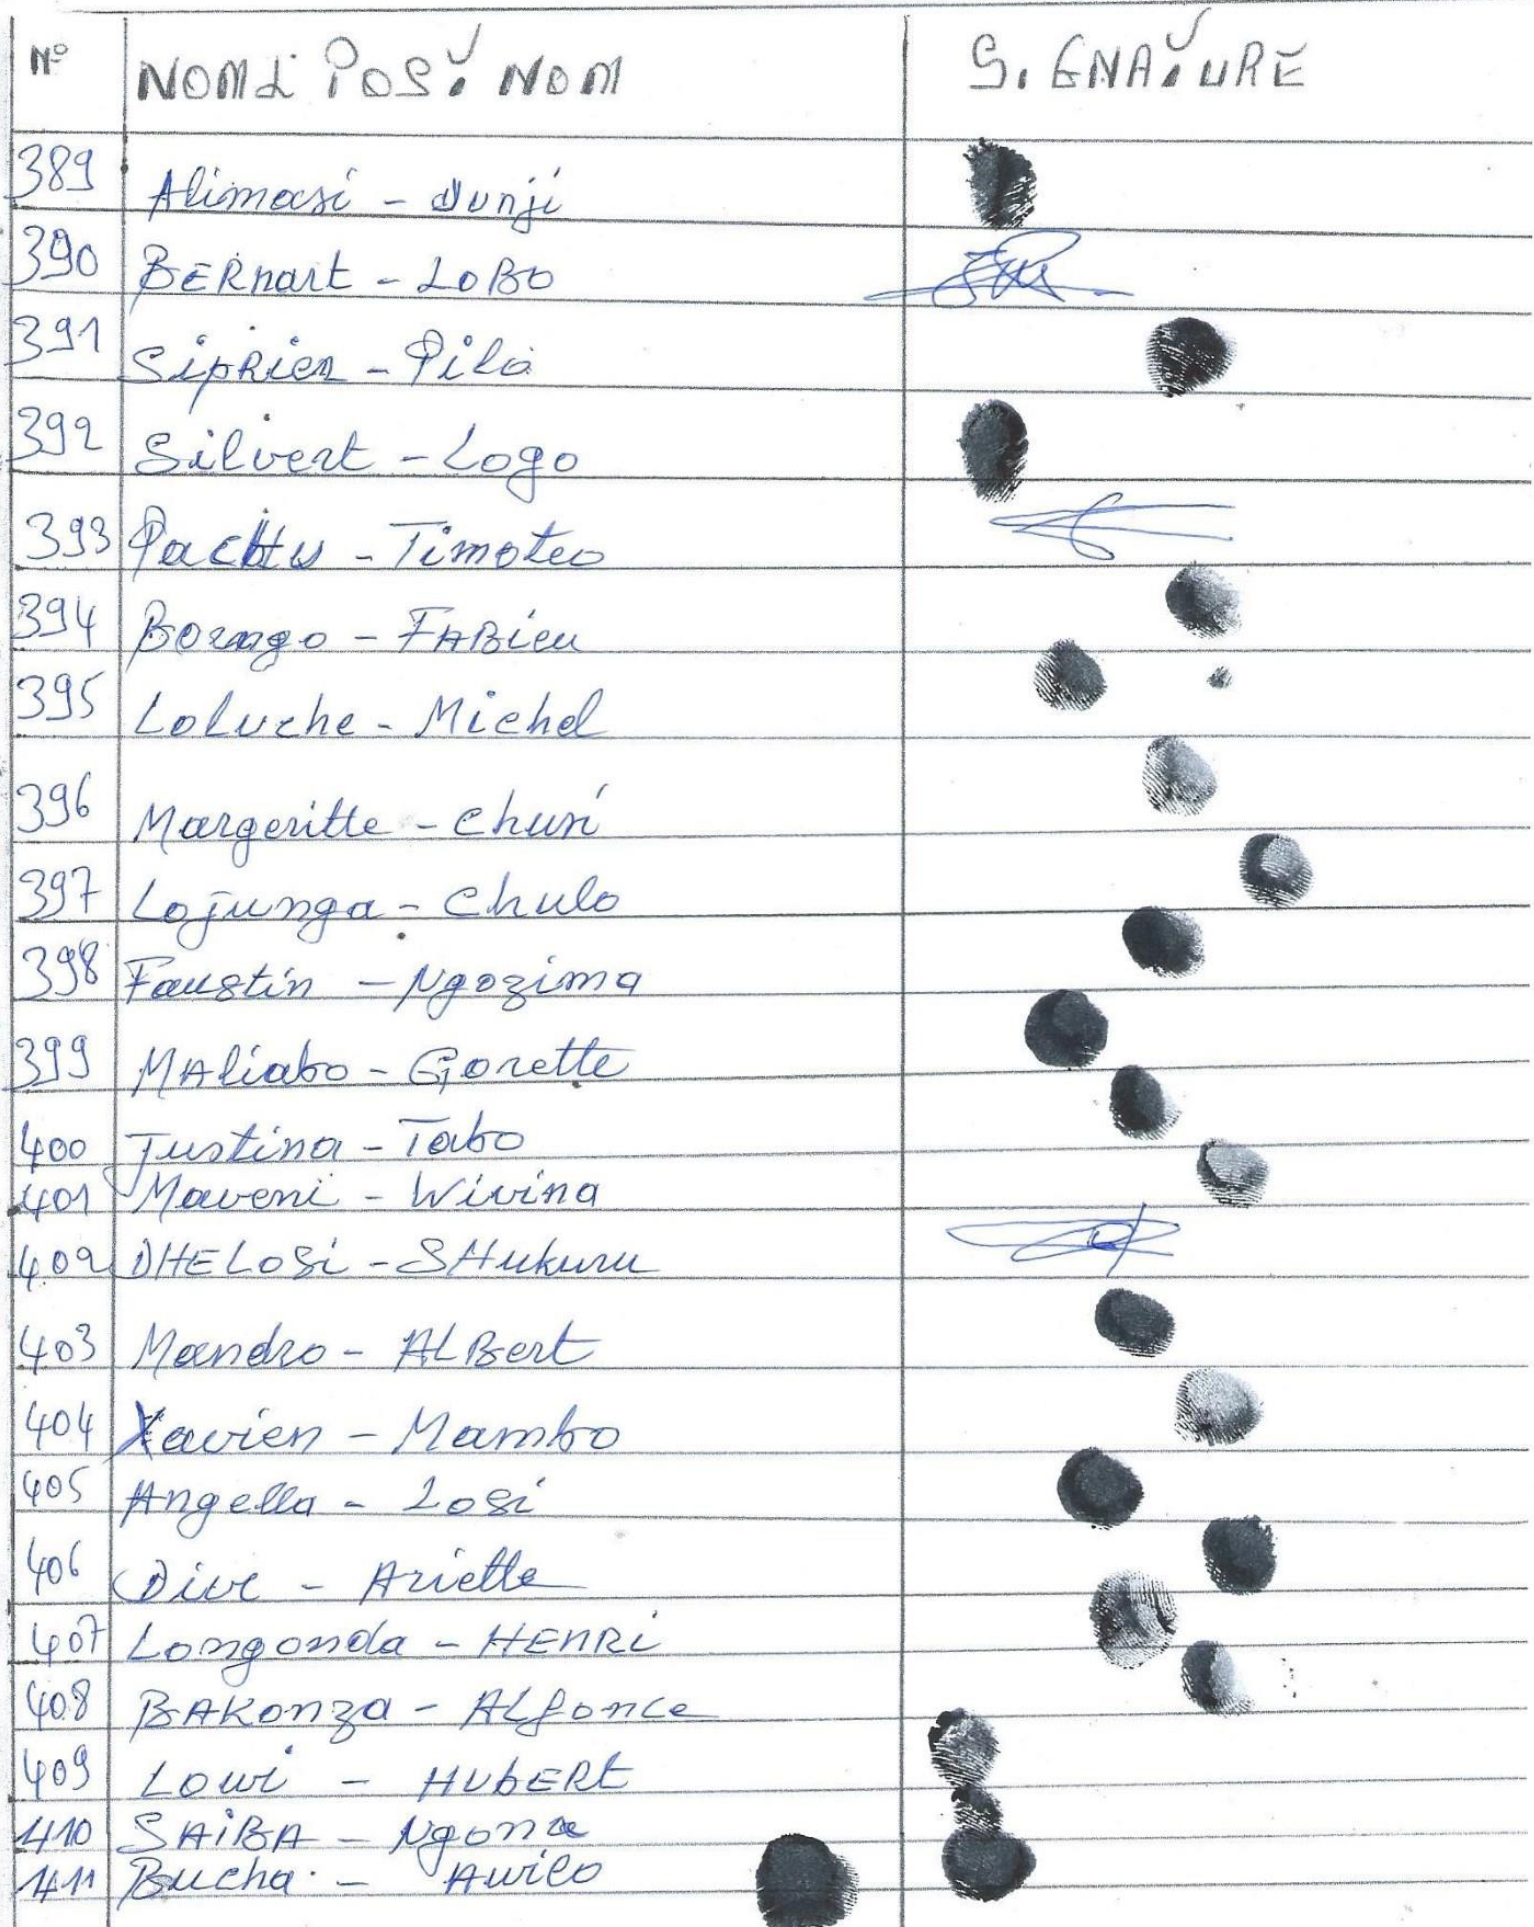 N° NOM & POST NOM SIGNATURE
389 Alimasi - Dunji
390 BERnart - LOBO
391 SipRien - Pilo
392 Silvert - Logo
393 - Timoteo
394 - FABien
395 Loluche - Michel
396 Margeritte - chuni
397 Lojunga - chulo
398 Faustin - Ngozima
399 MAliabo - Gorette
400 Justina - Tabo
401 Maveni - Wivina
402 DHELOSi - SHukuru
403 Mandro - ALBert
404 Xavien - Mambo
405 Angella - Losi
406 Dive - Arielle
407 Longonda - HENRi
408 BAKonza - ALfonce
409 Lowi - HUbERt
410 SAiBA - Ngona
411 Bucha - Awilo